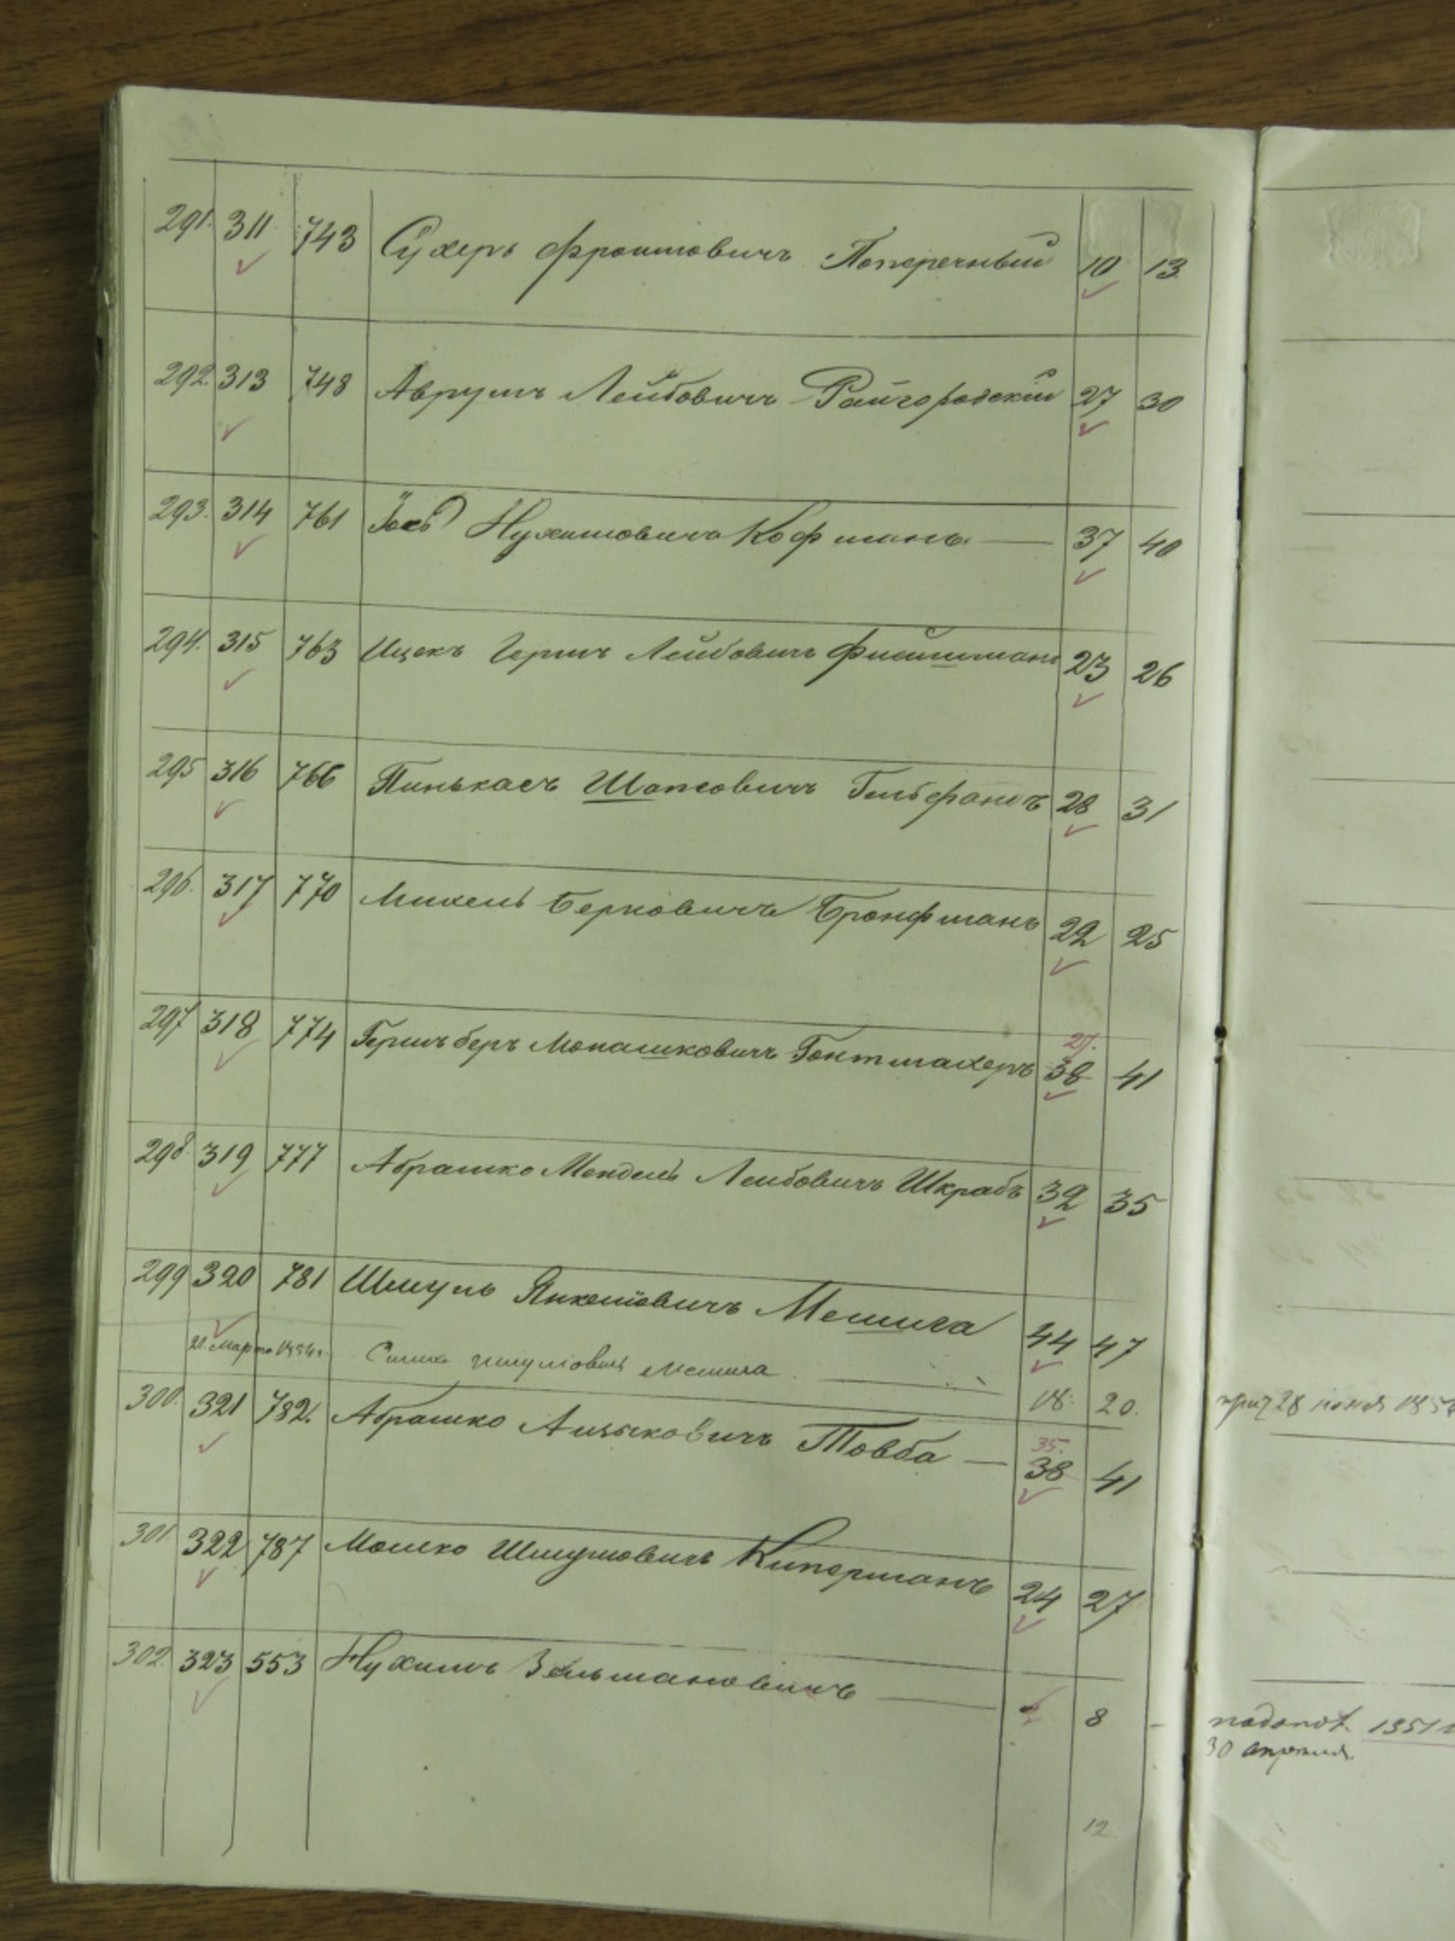 291. 311 743 Сухерь Фроимовичъ Поперечный 10 13
292. 313 748 Аврумъ Лейбовичъ Райгородскій 27 30
293. 314 761 Іосъ Нухимовичъ Кофманъ — 37 40
294. 315 763 Ицекъ Гершъ Лейбовичъ Фишманъ 23 26
295 316 766 Пинькасъ Шапсовичъ 28 31
296. 317 770 Михель Берковичъ Бронфманъ 22 25
27.
297 318 774 Гершъ беръ Монашковичъ Гонтмахеръ 38 41
298. 319 777 Абрашко Мендель Лейбовичъ Шкрабъ 32 35
299 320 781 Шмуль Янкелiовичъ Мешига 44 47
21 марта Симха Шмулiовичъ Мешига — 18. 20.
35.
300. 321 782. Абрашко Аицыковичъ Товба — 38 41
301. 322 787 Мошко Шмулiовичъ Киперманъ 24 27
302. 323 553 Нухимъ Зельмановичъ — 8 —
12
28 июня
1851
30 апреля.